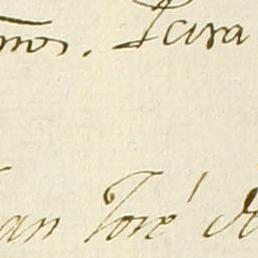 mos. Para
an José de